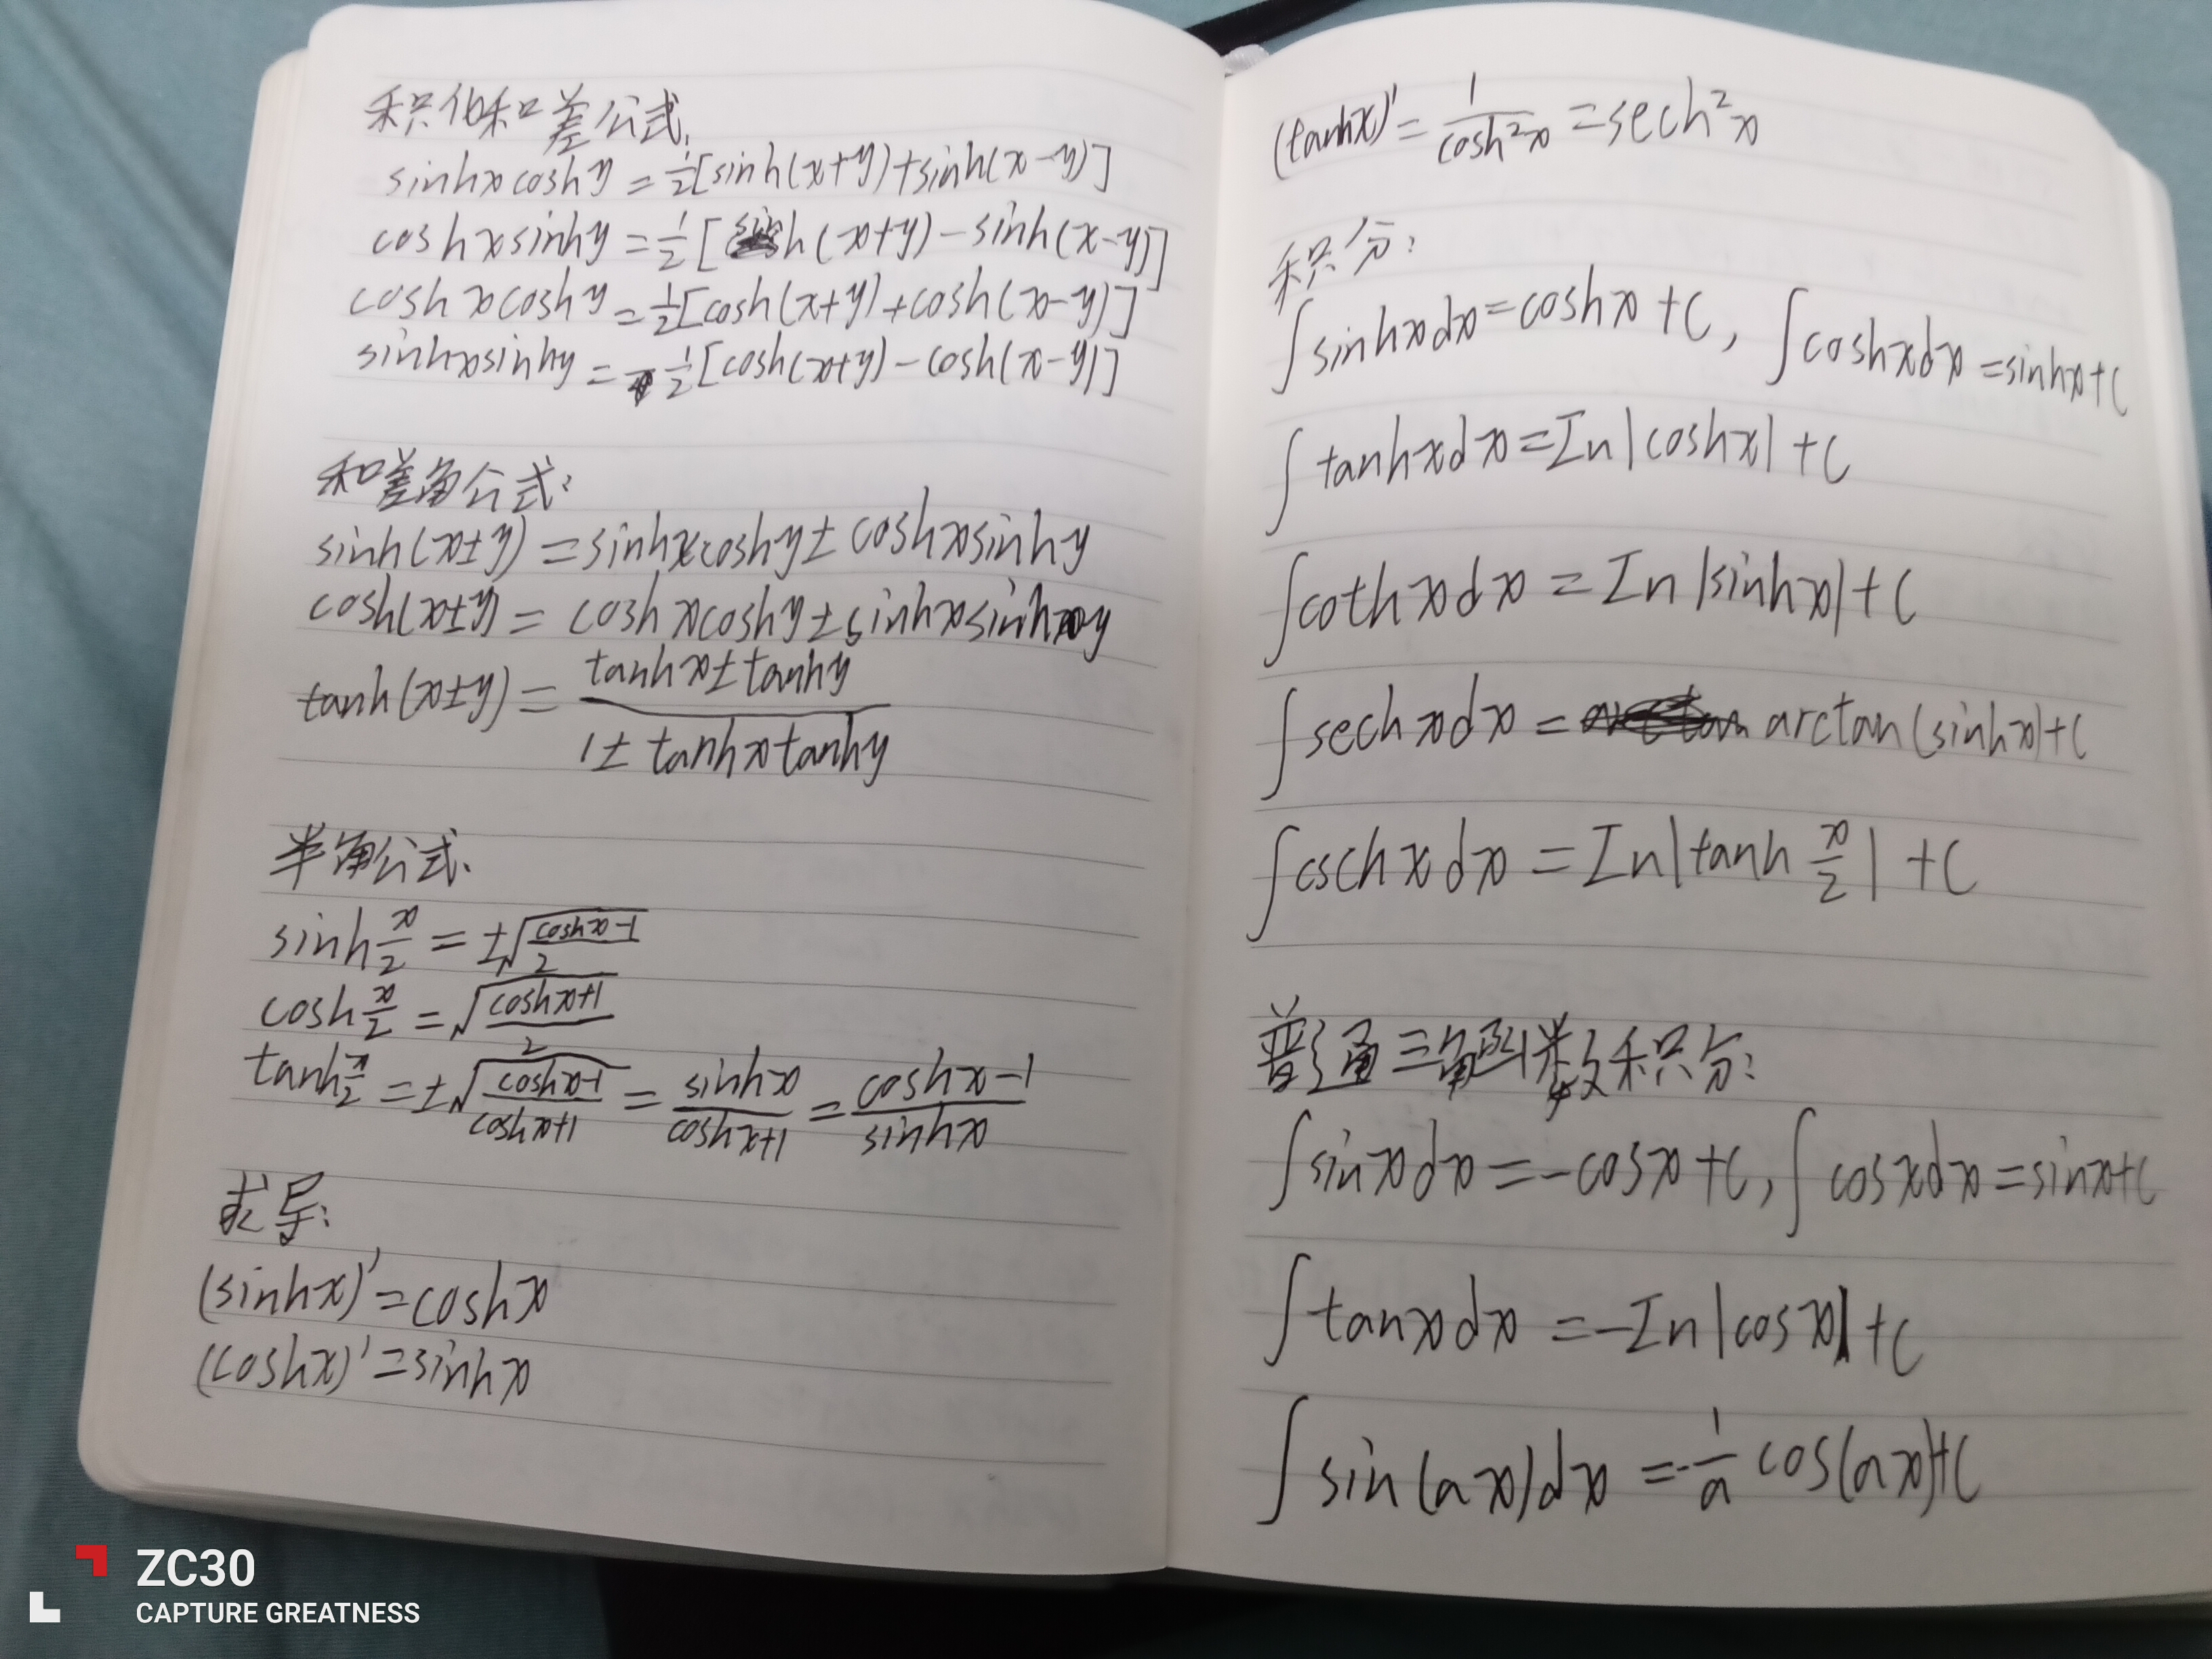 积化和差公式:
sinhxcoshy=½[sinh(x+y)+sinh(x-y)]
coshxsinhy=½[sinh(x+y)-sinh(x-y)]
coshxcoshy=½[cosh(x+y)+cosh(x-y)]
sinhxsinhy=½[cosh(x+y)-cosh(x-y)]
和差角公式:
sinh(x±y)=sinhxcoshy±coshxsinhy
cosh(x±y)=coshxcoshy±sinhxsinhy
tanh(x±y)=(tanhx±tanhy)/(1±tanhxtanhy)
半角公式:
sinh x/2=±√((coshx-1)/2)
cosh x/2=√((coshx+1)/2)
tanh x/2=±√((coshx-1)/(coshx+1))=sinhx/(coshx+1)=(coshx-1)/sinhx
求导:
(sinhx)'=coshx
(coshx)'=sinhx
(tanhx)'=1/cosh²x=sech²x
积分:
∫sinhxdx=coshx+C,∫coshxdx=sinhx+C
∫tanhxdx=In|coshx|+C
∫cothxdx=In|sinhx|+C
∫sechxdx=arctan(sinhx)+C
∫cschxdx=In|tanh x/2|+C
普通三角函数积分:
∫sinxdx=-cosx+C,∫cosxdx=sinx+C
∫tanxdx=-In|cosx|+C
∫sin(ax)dx=-1/a cos(ax)+C
ZC30
CAPTURE GREATNESS